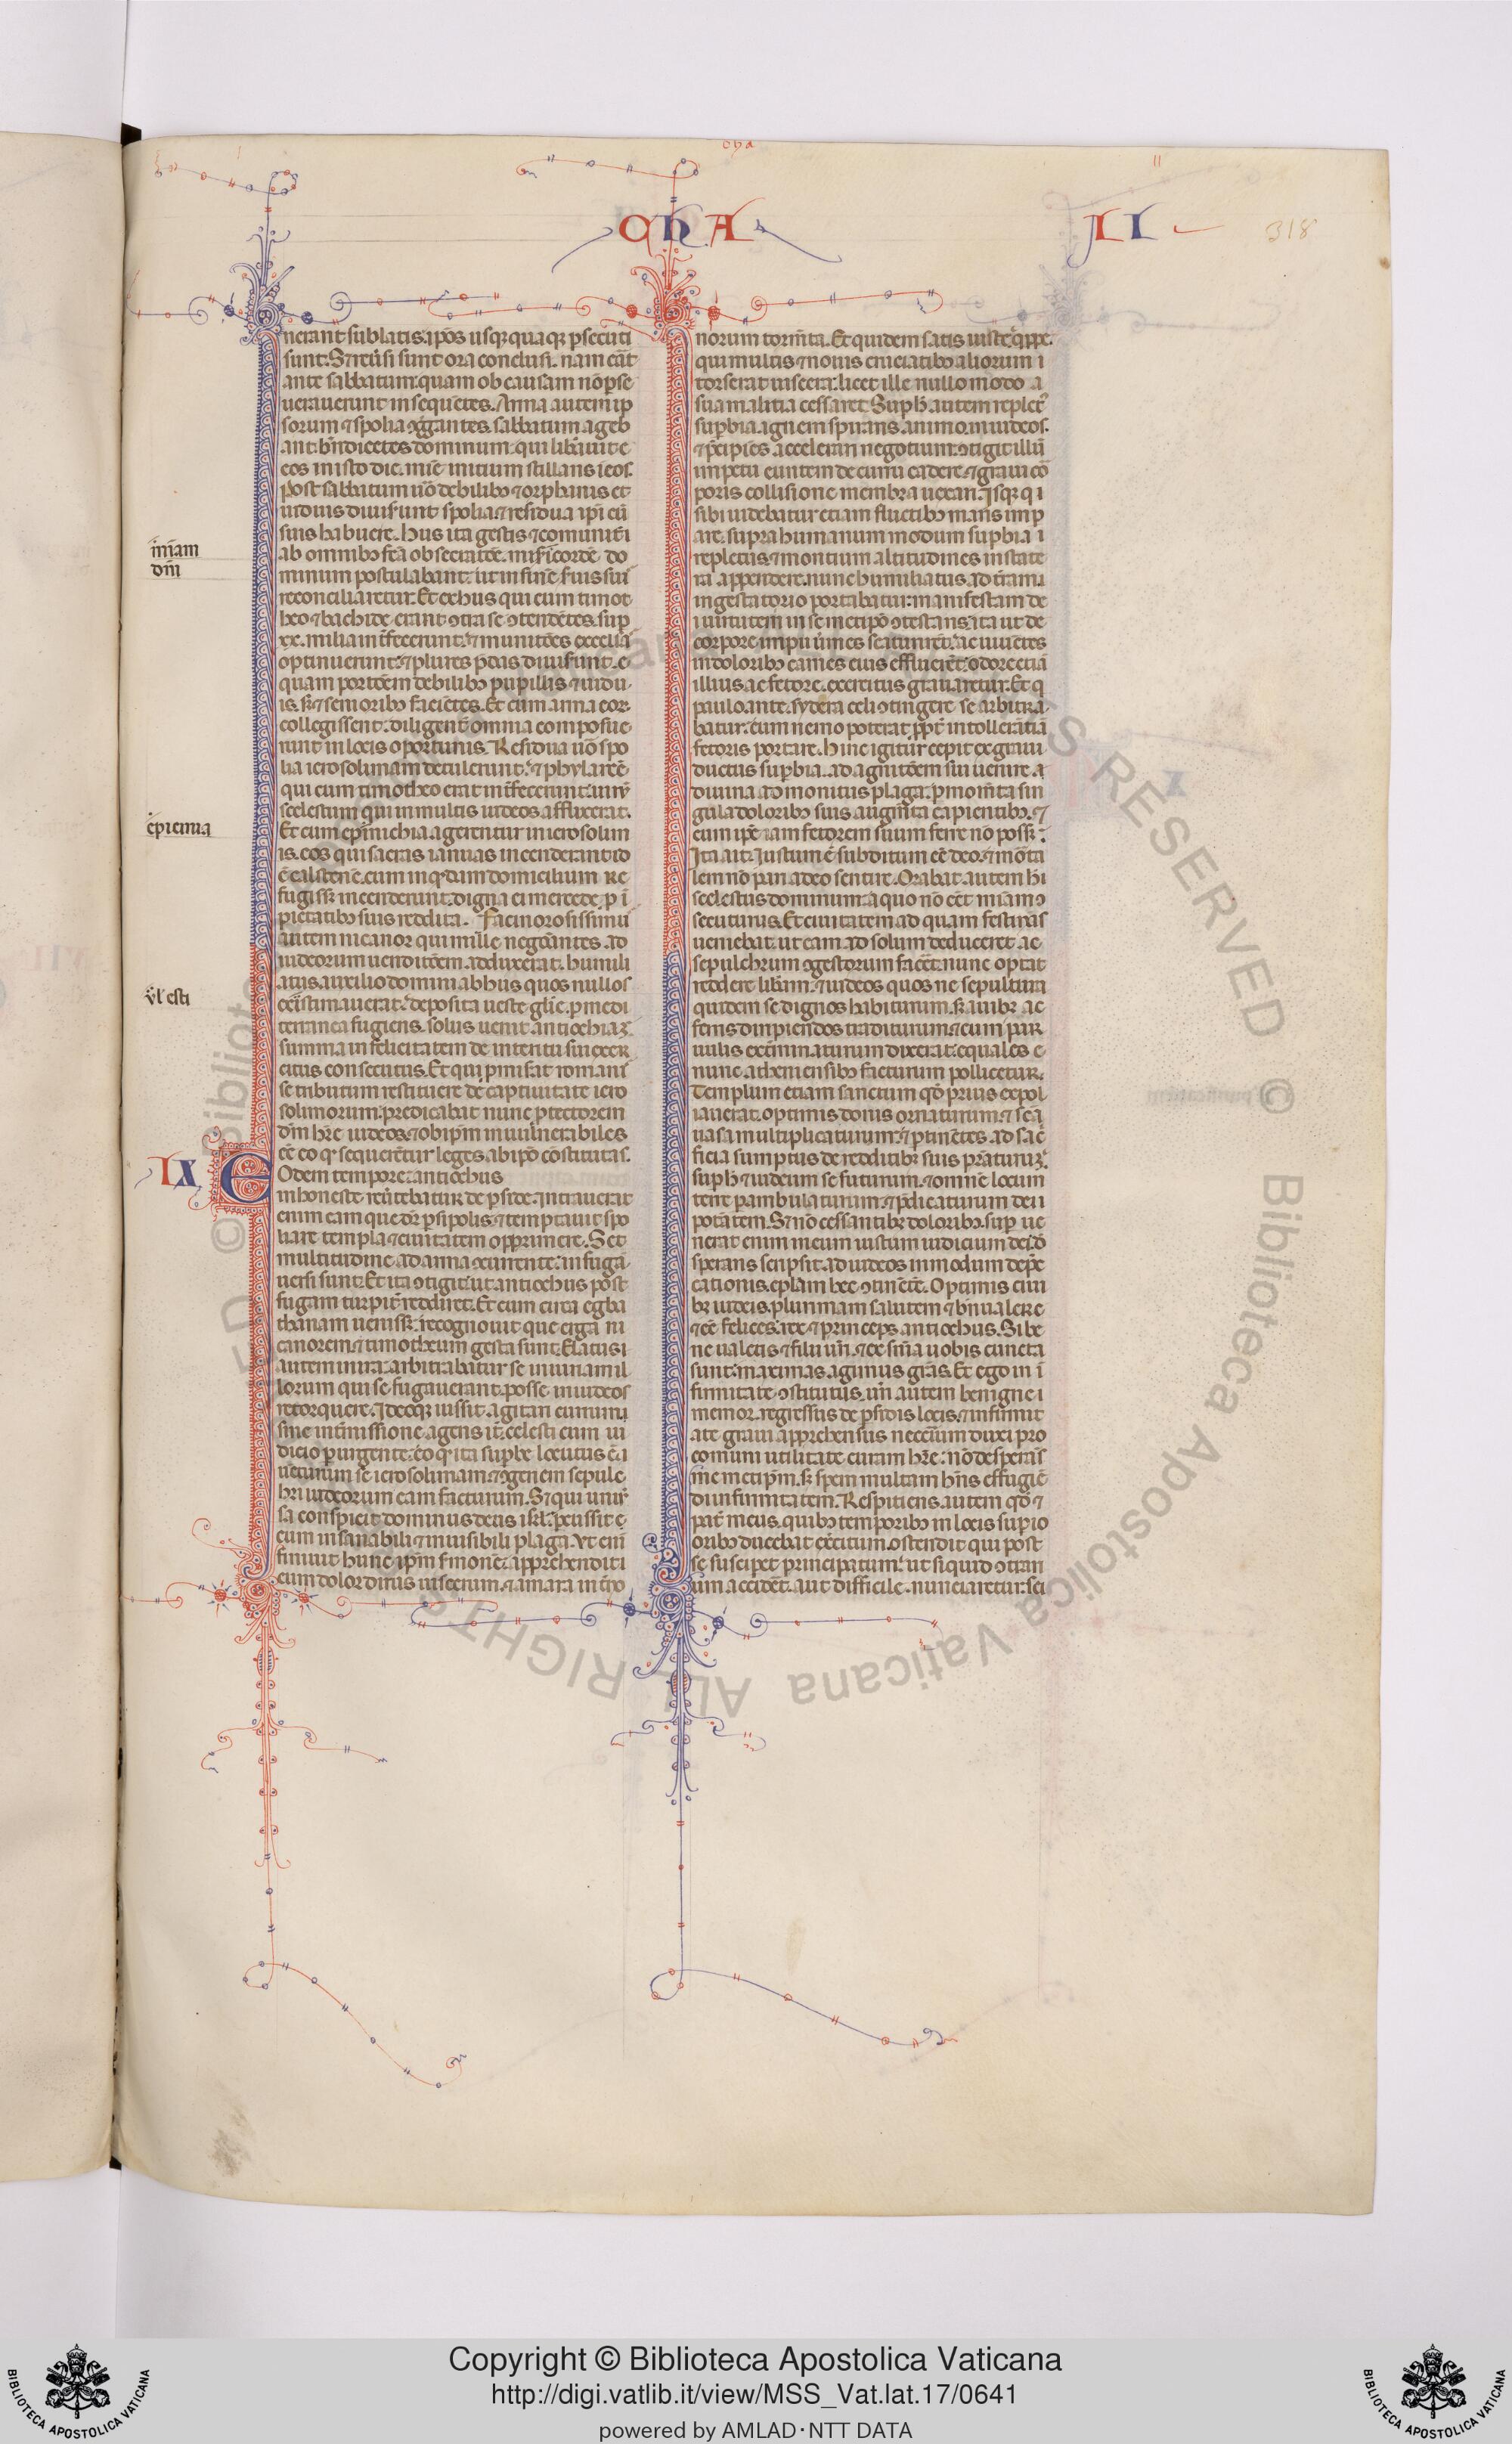 cha
QhA
II
318
nerant sublatis. ipos usq; quaq; psecuti
sunt. Sz reusi sunt ora conclusi. nam eat
ante sabbatum: quam ob causam no pse
uerauerunt insequetes. Arma autem ip
sorum ⁊ spolia ꝯgregantes. sabbatum ageb
ant. bndicetes dominum. qui libauit e
eos in isto die. mie initium stillans i eos.
Post sabbatum uo debilibꝫ ⁊ orphanis et
uiduis diuiserunt spolia. ⁊ residua ipi cu
suis habuere. hus ita gestis ⁊ comunit i
ab omnibꝫ fca obsecratoe. misicorde do
minum postulabant. ut in fine suis sui
reconciliaretur. Et ex hus qui cum timot
heo ⁊ bachide erant ꝯtra se ꝯtendetes. sup
xx. milia intfecerunt. ⁊ munitoes excelsa
optinuerunt. ⁊ plures pdas diuiserunt. e
quam portoem debilibꝫ pupillis ⁊ uidu
is. sz ⁊ senioribꝫ facietes. Et cum arma eor
collegissent. diligent omnia composue
runt in locis oportunis. Residua uo spo
lia ierosolimam detulerunt. ⁊ phylarce
qui cum timotheo erat intfecerunt. uiru
scelestum qui in multis iudeos afflixerat.
Et cum epinichia agerentur in ierosolim
is. eos qui sacras ianuas incenderant id
e calistene. cum in qddam domicilium re
fugiss incenderunt. digna ei mercede p i
pietatibꝫ suis reddita. Facinorosissimu
autem nicanor qui mille negotiantes ad
iudeorum uenditoem adduxerat. humili
atus auxilio domini ab hus quos nullos
existimauerat. deposita ueste glie. p medi
terranea fugiens. solus uenit antiochia.
summa infelicitatem de interitu sui exer
citus consecutus. Et qui pmisat romanis
se tributum restituere de captiuitate iero
solimorum. predicabat nunc ptectorem
dm hre iudeos. ⁊ ob ipm inuulnerabiles
ee eo qꝫ sequerentur leges ab ipo constitutas.
IX
EOdem tempore. antiochus
inhoneste reutebatur de pside. Intrauerat
enim eam que dr psipolis. ⁊ temptauit spo
liare templa ⁊ ciuitatem opprimere. Set
multitudine ad arma ꝯcurrente. in fuga
uersi sunt. Et ita ꝯtigit ut antiochus post
fugam turpit rediret. Et cum circa egba
thanam uenisset. recognouit que erga ni
canorem ⁊ timotheum gesta sunt. Elatus i
autem in ira. arbitrabatur se iniuriam il
lorum qui se fugauerant. posse in iudeos
retorquere. Ideoqꝫ iussit agitari currum
sine intmissione agens it. celesti eum iu
dicio purgente. eo qꝫ ita supbe locutus e. i
uenturum se ierosolimam. ⁊ ꝯgeriem sepulc
hri iudeorum eam facturum. Sz qui uniu
sa conspicit dominus deus isrl. pcussit e
eum insanabili ⁊ inuisibili plaga. Vt eni
finiuit hunc ipm smonem. apprehendit i
eum dolor dirus uiscerum. ⁊ amara intio
norum tormta. Et quidem satis iuste. qppe
qui multis ⁊ nouis cruciatibꝫ aliorum i
torserat uiscera. licet ille nullo modo a
sua malitia cessaret. Suph autem replet
supbia. ignem spirans animo in iudeos.
⁊ pcipies accelerari negotium. ꝯtigit illu
impetu euntem de curru cadere. ⁊ graui co
poris collisione membra uexari. Isqꝫ q i
sibi uidebatur etiam fluctibꝫ maris imp
are. supra humanum modum supbia i
repletus. ⁊ montium altitudines in state
ra appendere. nunc humiliatus ad tram.
in gestatorio portabatur. manifestam de
i uirtutem in se metipo ꝯtestans. ita ut de
corpore impii uermes scaturiret. ac uiuetes
in doloribꝫ carnes eius effluerent. odore etia
illius ac fetore. exercitus grauaretur. Et q
paulo ante. sydera celi ꝯtingere se arbitra
batur. eum nemo poterat ppt intollerantia
fetoris portare. Hinc igitur cepit ex graui
ductus supbia. ad agnitoem sui uenire. a
diuina admonitus plaga. p momta sin
gula doloribꝫ suis augmta capientibꝫ. ⁊
cum ipe iam fetorem suum ferre no poss.
Ita ait. Iustum e subditum ee deo. ⁊ morta
lem no paria deo sentire. Orabat autem hi
scelestus dominum. a quo no eet miam ꝯ
secuturus. Et ciuitatem ad quam festinas
ueniebat. ut eam ad solum deduceret ac
sepulchrum ꝯgestorum facet. nunc optat
reddere liberam. ⁊ iudeos quos ne sepultura
quidem se dignos habiturum. sz auibꝫ ac
feris diripiendos traditurum. ⁊ cum par
uulis exterminaturum dixerat. equales e
nunc atheniensibꝫ facturum pollicetur.
Templum etiam sanctum qd prius expol
iauerat. optimis donis ornaturum. ⁊ sca
uasa multiplicaturum. ⁊ ptinetes ad sac
ficia sumptus de redditibꝫ suis prestaturu.
suph ⁊ iudeum se futurum. ⁊ omnem locum
terre pambulaturum. ⁊ pdicaturum dei i
potatem. Sz no cessantibꝫ doloribꝫ. sup ue
nerat enim in eum iustum iudicium dei. do
sperans scripsit ad iudeos in modum depre
cationis. eplam hec ꝯtinente. Optimis ciui
bꝫ iudeis. plurimam salutem ⁊ bn ualere
⁊ ee felices. rex ⁊ princeps antiochus. Si be
ne ualetis ⁊ filii uri. ⁊ ex snia uobis cuncta
sunt. maximas agimus gras. Et ego in i
firmitate ꝯstitutus. uri autem benigne i
memor. regressus de psidis locis. ⁊ infirmit
ate graui apprehensus necessarium duxi pro
comuni utilitate curam hre. no desperas
me metipm. sz spem multam hns effugie
di infirmitatem. Respitiens autem qd ⁊
pat meus. quibꝫ temporibꝫ in locis supio
oribꝫ ducebat excitum. ostendit qui post
se suscipet principatum. ut si quid ꝯtrari
um accidet. aut difficile nunciaretur. sci
miam
dni
epicinia
ul esti
© Biblioteca Apostolica Vaticana ALL RIGHTS RESERVED
Copyright © Biblioteca Apostolica Vaticana
http://digi.vatlib.it/view/MSS_Vat.lat.17/0641
powered by AMLAD·NTT DATA
BIBLIOTECA APOSTOLICA VATICANA
BIBLIOTECA APOSTOLICA VATICANA